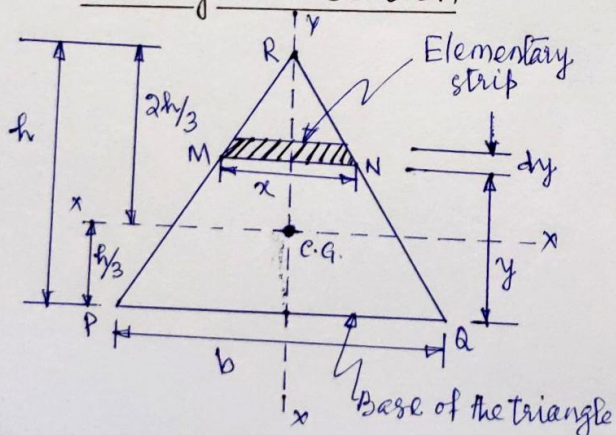 y
R
Elementary
strip
h
2h/3
M
N
dy
x
x
-X
C.G.
h/3
y
P
Q
b
x
Base of the triangle